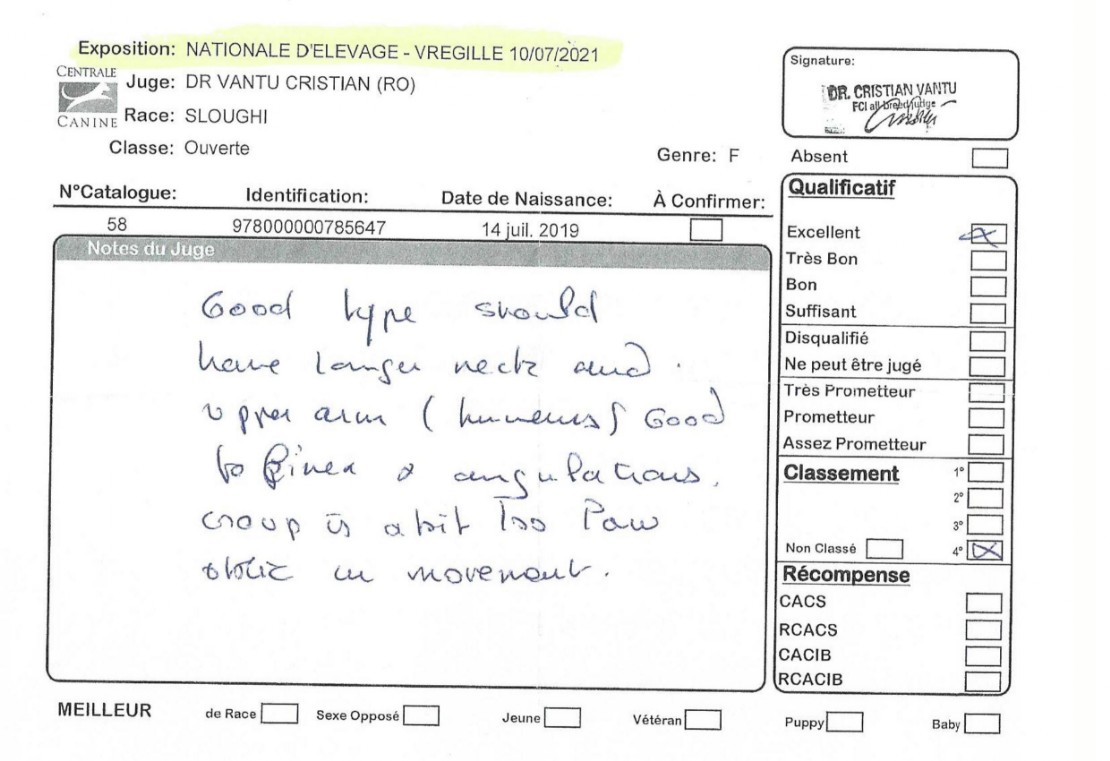 Exposition: NATIONALE D'ELEVAGE - VREGILLE 10/07/2021
CENTRALE CANINE
Juge: DR VANTU CRISTIAN (RO)
Race: SLOUGHI
Classe: Ouverte
Genre: F
Signature:
DR. CRISTIAN VANTU
FCI all breed judge
Absent
N°Catalogue: Identification: Date de Naissance: À Confirmer:
58 978000000785647 14 juil. 2019
Notes du Juge
Good type should
have longer neck and
upper arm (humerus) Good
angulations.
croup is a bit too low
in movement.
Qualificatif
Excellent
Très Bon
Bon
Suffisant
Disqualifié
Ne peut être jugé
Très Prometteur
Prometteur
Assez Prometteur
Classement 1°
2°
3°
Non Classé 4°
Récompense
CACS
RCACS
CACIB
RCACIB
MEILLEUR de Race Sexe Opposé Jeune Vétéran Puppy Baby